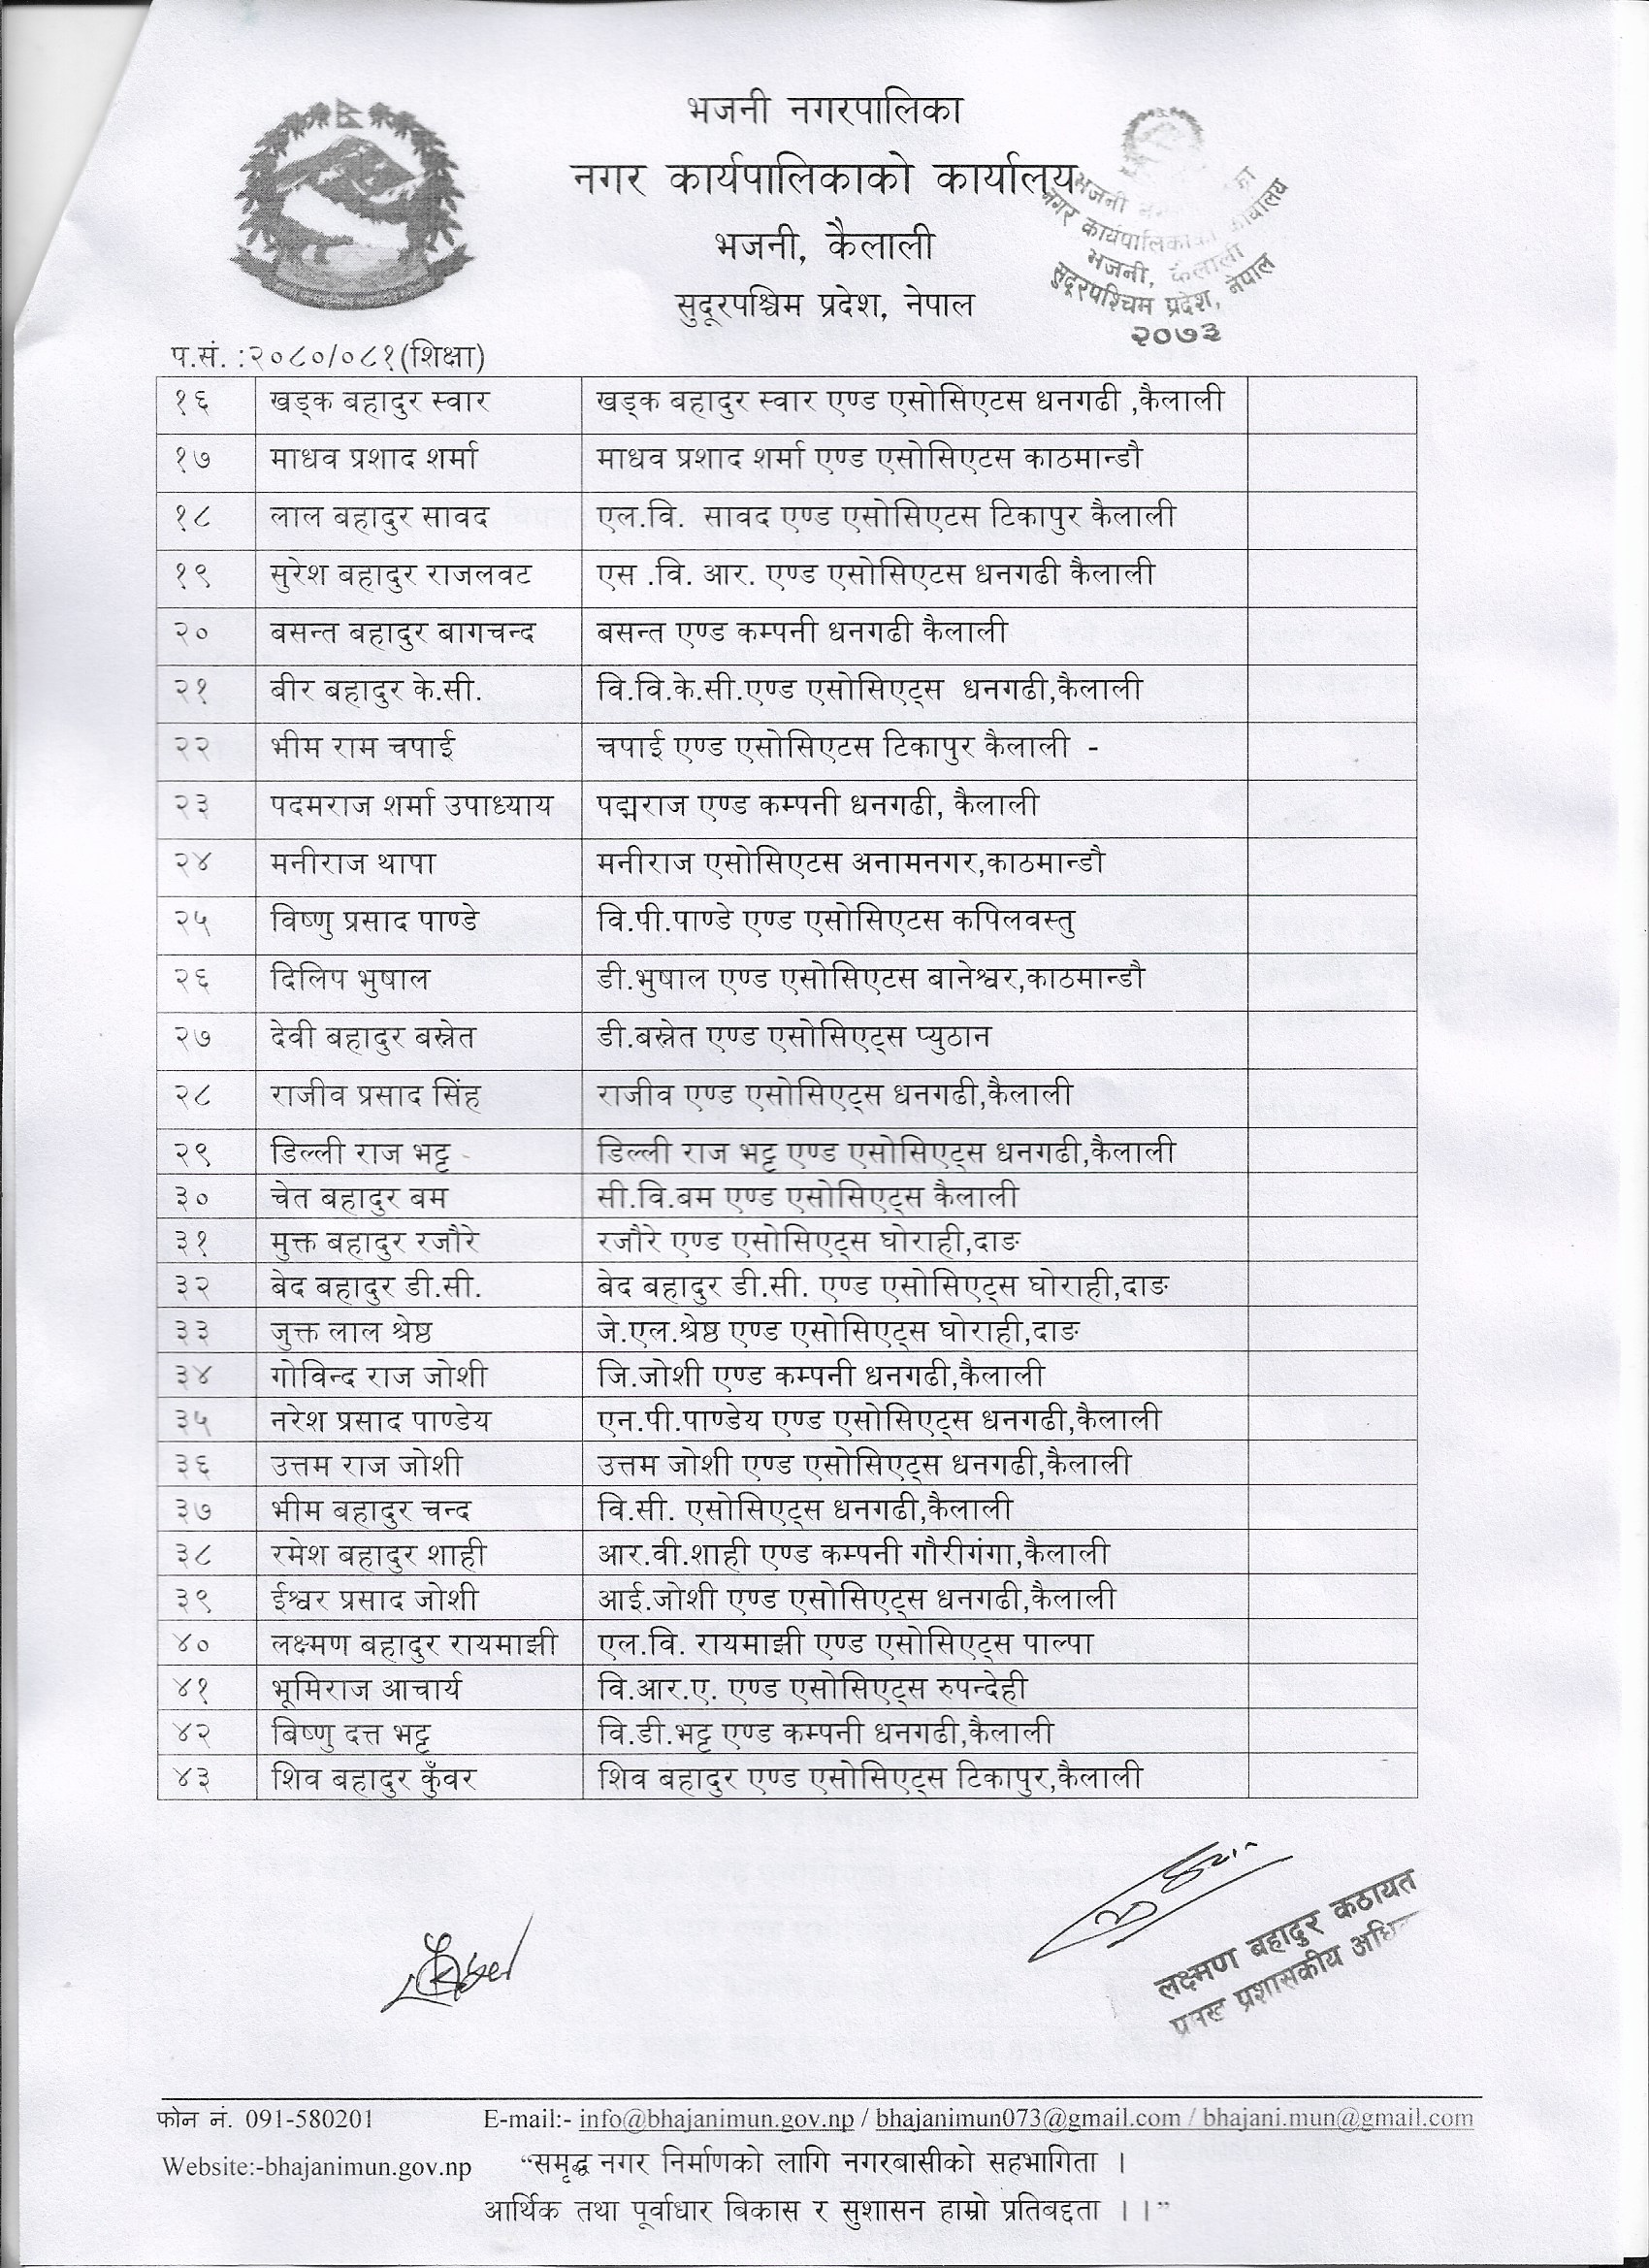 भजनी नगरपालिका
नगर कार्यपालिकाको कार्यालय
भजनी, कैलाली
सुदूरपश्चिम प्रदेश, नेपाल
भजनी
नगर कार्यपालिकाको कार्यालय
भजनी, कैलाली
सुदूरपश्चिम प्रदेश, नेपाल
२०७३
प.सं. :२०८०/०८१(शिक्षा)
१६ खड्क बहादुर स्वार खड्क बहादुर स्वार एण्ड एसोसिएटस धनगढी ,कैलाली
१७ माधव प्रशाद शर्मा माधव प्रशाद शर्मा एण्ड एसोसिएटस काठमान्डौ
१८ लाल बहादुर सावद एल.वि. सावद एण्ड एसोसिएटस टिकापुर कैलाली
१९ सुरेश बहादुर राजलवट एस .वि. आर. एण्ड एसोसिएटस धनगढी कैलाली
२० बसन्त बहादुर बागचन्द बसन्त एण्ड कम्पनी धनगढी कैलाली
२१ बीर बहादुर के.सी. वि.वि.के.सी.एण्ड एसोसिएट्स धनगढी,कैलाली
२२ भीम राम चपाई चपाई एण्ड एसोसिएटस टिकापुर कैलाली -
२३ पदमराज शर्मा उपाध्याय पद्मराज एण्ड कम्पनी धनगढी, कैलाली
२४ मनीराज थापा मनीराज एसोसिएटस अनामनगर,काठमान्डौ
२५ विष्णु प्रसाद पाण्डे वि.पी.पाण्डे एण्ड एसोसिएटस कपिलवस्तु
२६ दिलिप भुषाल डी.भुषाल एण्ड एसोसिएटस बानेश्वर,काठमान्डौ
२७ देवी बहादुर बस्नेत डी.बस्नेत एण्ड एसोसिएट्स प्युठान
२८ राजीव प्रसाद सिंह राजीव एण्ड एसोसिएट्स धनगढी,कैलाली
२९ डिल्ली राज भट्ट डिल्ली राज भट्ट एण्ड एसोसिएट्स धनगढी,कैलाली
३० चेत बहादुर बम सी.वि.बम एण्ड एसोसिएट्स कैलाली
३१ मुक्त बहादुर रजौरे रजौरे एण्ड एसोसिएट्स घोराही,दाङ
३२ बेद बहादुर डी.सी. बेद बहादुर डी.सी. एण्ड एसोसिएट्स घोराही,दाङ
३३ जुक्त लाल श्रेष्ठ जे.एल.श्रेष्ठ एण्ड एसोसिएट्स घोराही,दाङ
३४ गोविन्द राज जोशी जि.जोशी एण्ड कम्पनी धनगढी,कैलाली
३५ नरेश प्रसाद पाण्डेय एन.पी.पाण्डेय एण्ड एसोसिएट्स धनगढी,कैलाली
३६ उत्तम राज जोशी उत्तम जोशी एण्ड एसोसिएट्स धनगढी,कैलाली
३७ भीम बहादुर चन्द वि.सी. एसोसिएट्स धनगढी,कैलाली
३८ रमेश बहादुर शाही आर.वी.शाही एण्ड कम्पनी गौरीगंगा,कैलाली
३९ ईश्वर प्रसाद जोशी आई.जोशी एण्ड एसोसिएट्स धनगढी,कैलाली
४० लक्ष्मण बहादुर रायमाझी एल.वि. रायमाझी एण्ड एसोसिएट्स पाल्पा
४१ भूमिराज आचार्य वि.आर.ए. एण्ड एसोसिएट्स रुपन्देही
४२ बिष्णु दत्त भट्ट वि.डी.भट्ट एण्ड कम्पनी धनगढी,कैलाली
४३ शिव बहादुर कुँवर शिव बहादुर एण्ड एसोसिएट्स टिकापुर,कैलाली
लक्ष्मण बहादुर कठायत
प्रमुख प्रशासकीय
फोन नं. 091-580201 E-mail:- info@bhajanimun.gov.np / bhajanimun073@gmail.com / bhajani.mun@gmail.com
Website:-bhajanimun.gov.np “समृद्ध नगर निर्माणको लागि नगरबासीको सहभागिता ।
आर्थिक तथा पूर्वाधार बिकास र सुशासन हाम्रो प्रतिबद्दता ।।”